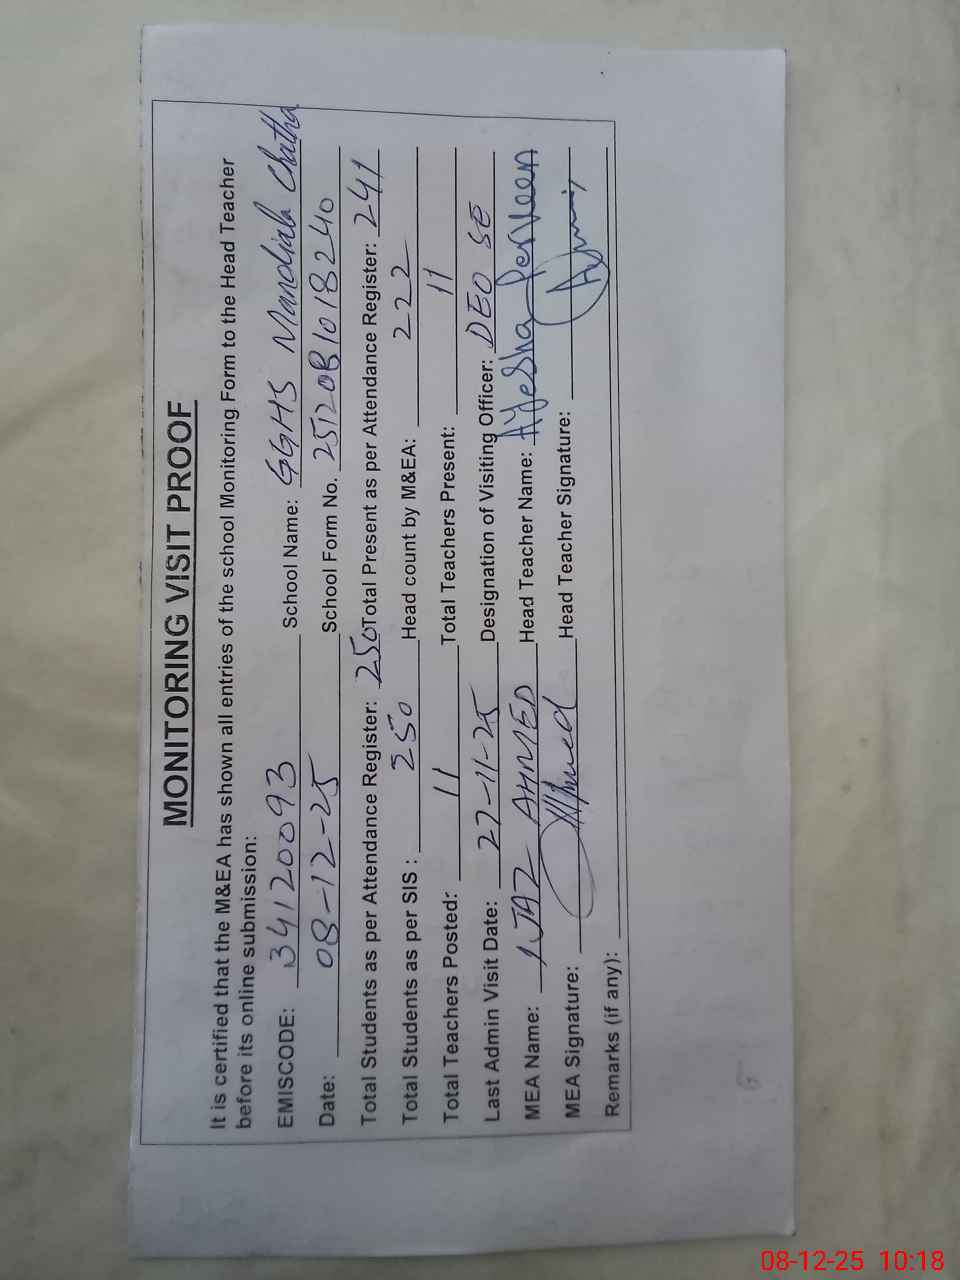 MONITORING VISIT PROOF
It is certified that the M&EA has shown all entries of the school Monitoring Form to the Head Teacher
before its online submission:
EMISCODE: 34120093 School Name: GGHS Mandiala Chatha
Date: 08-12-25 School Form No. 251208101018240
Total Students as per Attendance Register: 250 Total Present as per Attendance Register: 241
Total Students as per SIS : 250 Head count by M&EA: 222
Total Teachers Posted: 11 Total Teachers Present: 11
Last Admin Visit Date: 27-11-25 Designation of Visiting Officer: DEO SE
MEA Name: IJAZ AHMED Head Teacher Name: Ayesha Perveen
MEA Signature: Head Teacher Signature:
Remarks (if any):
08-12-25 10:18